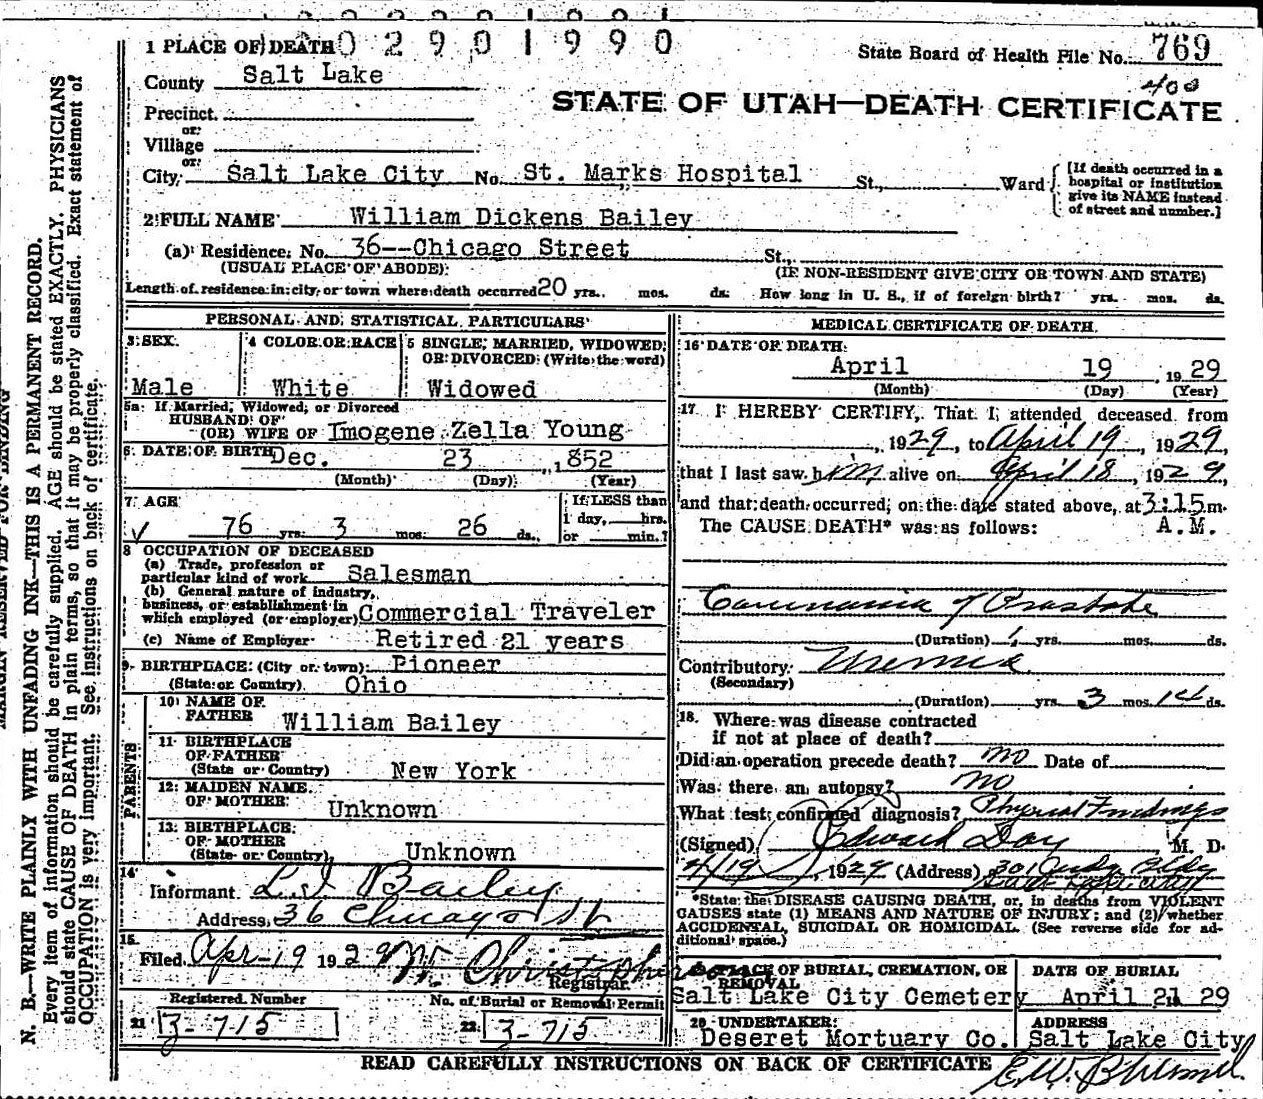 0290 1990
1 PLACE OF DEATH
State Board of Health File No. 769
400
County Salt Lake
STATE OF UTAH—DEATH CERTIFICATE
Precinct
or
Village
or
City Salt Lake City No. St. Marks Hospital St., Ward
[If death occurred in a hospital or institution give its NAME instead of street and number.]
2 FULL NAME William Dickens Bailey
(a) Residence. No. 36--Chicago Street St.,
(USUAL PLACE OF ABODE) (IF NON-RESIDENT GIVE CITY OR TOWN AND STATE)
Length of residence in city or town where death occurred 20 yrs. mos. ds. How long in U. S., if of foreign birth? yrs. mos. ds.
PERSONAL AND STATISTICAL PARTICULARS
3 SEX 4 COLOR OR RACE 5 SINGLE, MARRIED, WIDOWED,
OR DIVORCED (Write the word)
Male White Widowed
5a If Married, Widowed, or Divorced
HUSBAND OF
(OR) WIFE OF Imogene Zella Young
6 DATE OF BIRTH Dec. 23 1852
(Month) (Day) (Year)
7 AGE If LESS than
1 day, hrs.
76 yrs. 3 mos. 26 ds., or min.?
8 OCCUPATION OF DECEASED
(a) Trade, profession or
particular kind of work Salesman
(b) General nature of industry,
business, or establishment in
which employed (or employer) Commercial Traveler
(c) Name of Employer Retired 21 years
9 BIRTHPLACE (City or town) Pioneer
(State or Country) Ohio
PARENTS
10 NAME OF
FATHER William Bailey
11 BIRTHPLACE
OF FATHER
(State or Country) New York
12 MAIDEN NAME
OF MOTHER Unknown
13 BIRTHPLACE
OF MOTHER
(State or Country) Unknown
14
Informant Bailey
Address 36 Chicago St
15
Filed Apr-19 1929 Christopherson
Registrar
Registered Number No. of Burial or Removal Permit
21 3-715 22 3-715
MEDICAL CERTIFICATE OF DEATH
16 DATE OF DEATH
April 19 1929
(Month) (Day) (Year)
17 I HEREBY CERTIFY, That I attended deceased from
, 1929, to April 19, 1929,
that I last saw him alive on April 18, 1929,
and that death occurred, on the date stated above, at 3:15 m.
The CAUSE DEATH* was as follows: A.M.
Carcinoma of Prostate
(Duration) 1 yrs. mos. ds.
Contributory Uremia
(Secondary)
(Duration) yrs. 3 mos. 14 ds.
18 Where was disease contracted
if not at place of death?
Did an operation precede death? no Date of
Was there an autopsy? no
What test confirmed diagnosis? Physical Findings
(Signed) Edward Day, M. D.
4/19 1929 (Address) 301 Judge Bldg
Salt Lake City
*State the DISEASE CAUSING DEATH, or, in deaths from VIOLENT
CAUSES state (1) MEANS AND NATURE OF INJURY; and (2) whether
ACCIDENTAL, SUICIDAL OR HOMICIDAL. (See reverse side for ad-
ditional space.)
PLACE OF BURIAL, CREMATION, OR DATE OF BURIAL
REMOVAL
Salt Lake City Cemetery April 21 29
20 UNDERTAKER ADDRESS
Deseret Mortuary Co. Salt Lake City
READ CAREFULLY INSTRUCTIONS ON BACK OF CERTIFICATE
MARGIN RESERVED FOR BINDING
N. B.—WRITE PLAINLY WITH UNFADING INK—THIS IS A PERMANENT RECORD.
Every item of information should be carefully supplied. AGE should be stated EXACTLY. PHYSICIANS
should state CAUSE OF DEATH in plain terms, so that it may be properly classified. Exact statement of
OCCUPATION is very important. See instructions on back of certificate.